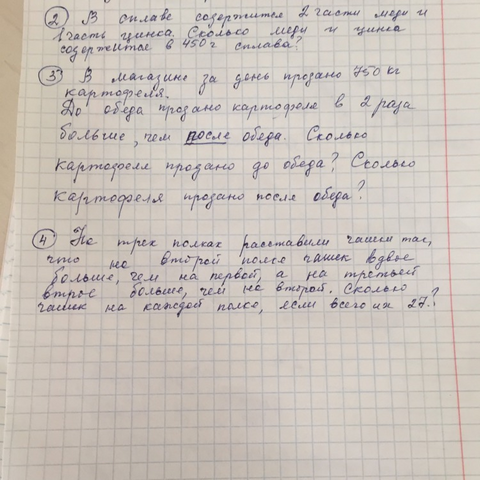 ② В сплаве содержится 2 части меди и
1 часть цинка. Сколько меди и цинка
содержится в 450 г сплава?
③ В магазине за день продано 750 кг
картофеля.
До обеда продано картофеля в 2 раза
больше, чем после обеда. Сколько
картофеля продано до обеда? Сколько
картофеля продано после обеда?
④ На трех полках расставили чашки так,
что на второй полке чашек вдвое
больше, чем на первой, а на третьей
втрое больше, чем на второй. Сколько
чашек на каждой полке, если всего их 27?